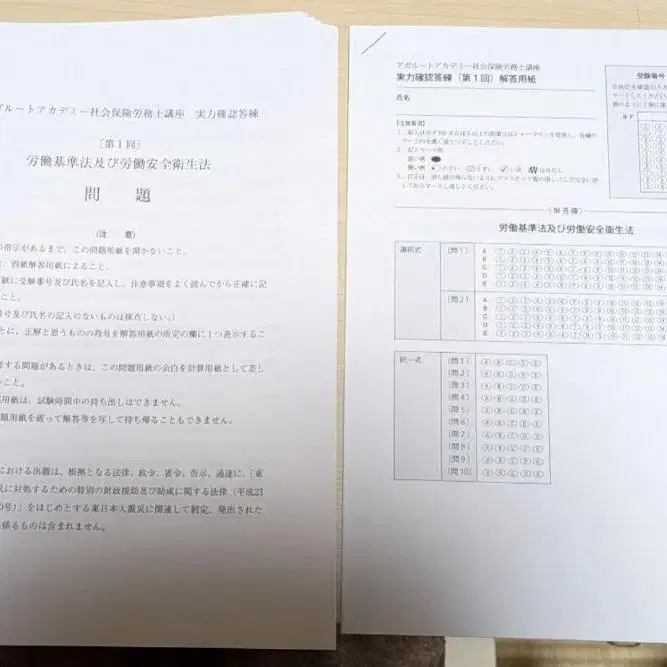 グルートアカデミー社会保険労務士講座 実力確認答練
［第1回］
労働基準法及び労働安全衛生法
問 題
（注 意）
の指示があるまで、この問題用紙を開かないこと。
、別紙解答用紙によること。
紙に受験番号及び氏名を記入し、注意事項をよく読んでから正確に記
こと。
号及び氏名の記入のないものは採点しない。）
とに、正解と思うものの符号を解答用紙の所定の欄に1つ表示するこ
する問題があるときは、この問題用紙の余白を計算用紙として差し
いこと。
用紙は、試験時間中の持ち出しはできません。
題用紙を破って解答等を写して持ち帰ることもできません。
における出題は、根拠となる法律、政令、省令、告示、通達に、「東
災に対処するための特別の財政援助及び助成に関する法律（平成23
0号）」をはじめとする東日本大震災に関連して制定、発出された
係るものは含まれません。
アガルートアカデミー社会保険労務士講座
実力確認答練（第1回）解答用紙
氏名
受験番号
［注意事項］
良い例
悪い例
（解答欄）
労働基準法及び労働安全衛生法
選択式
［問1］
A
B
C
D
E
［問2］
A
B
C
D
E
択一式
［問1］ A B C D E
［問2］ A B C D E
［問3］ A B C D E
［問4］ A B C D E
［問5］ A B C D E
［問6］ A B C D E
［問7］ A B C D E
［問8］ A B C D E
［問9］ A B C D E
［問10］ A B C D E